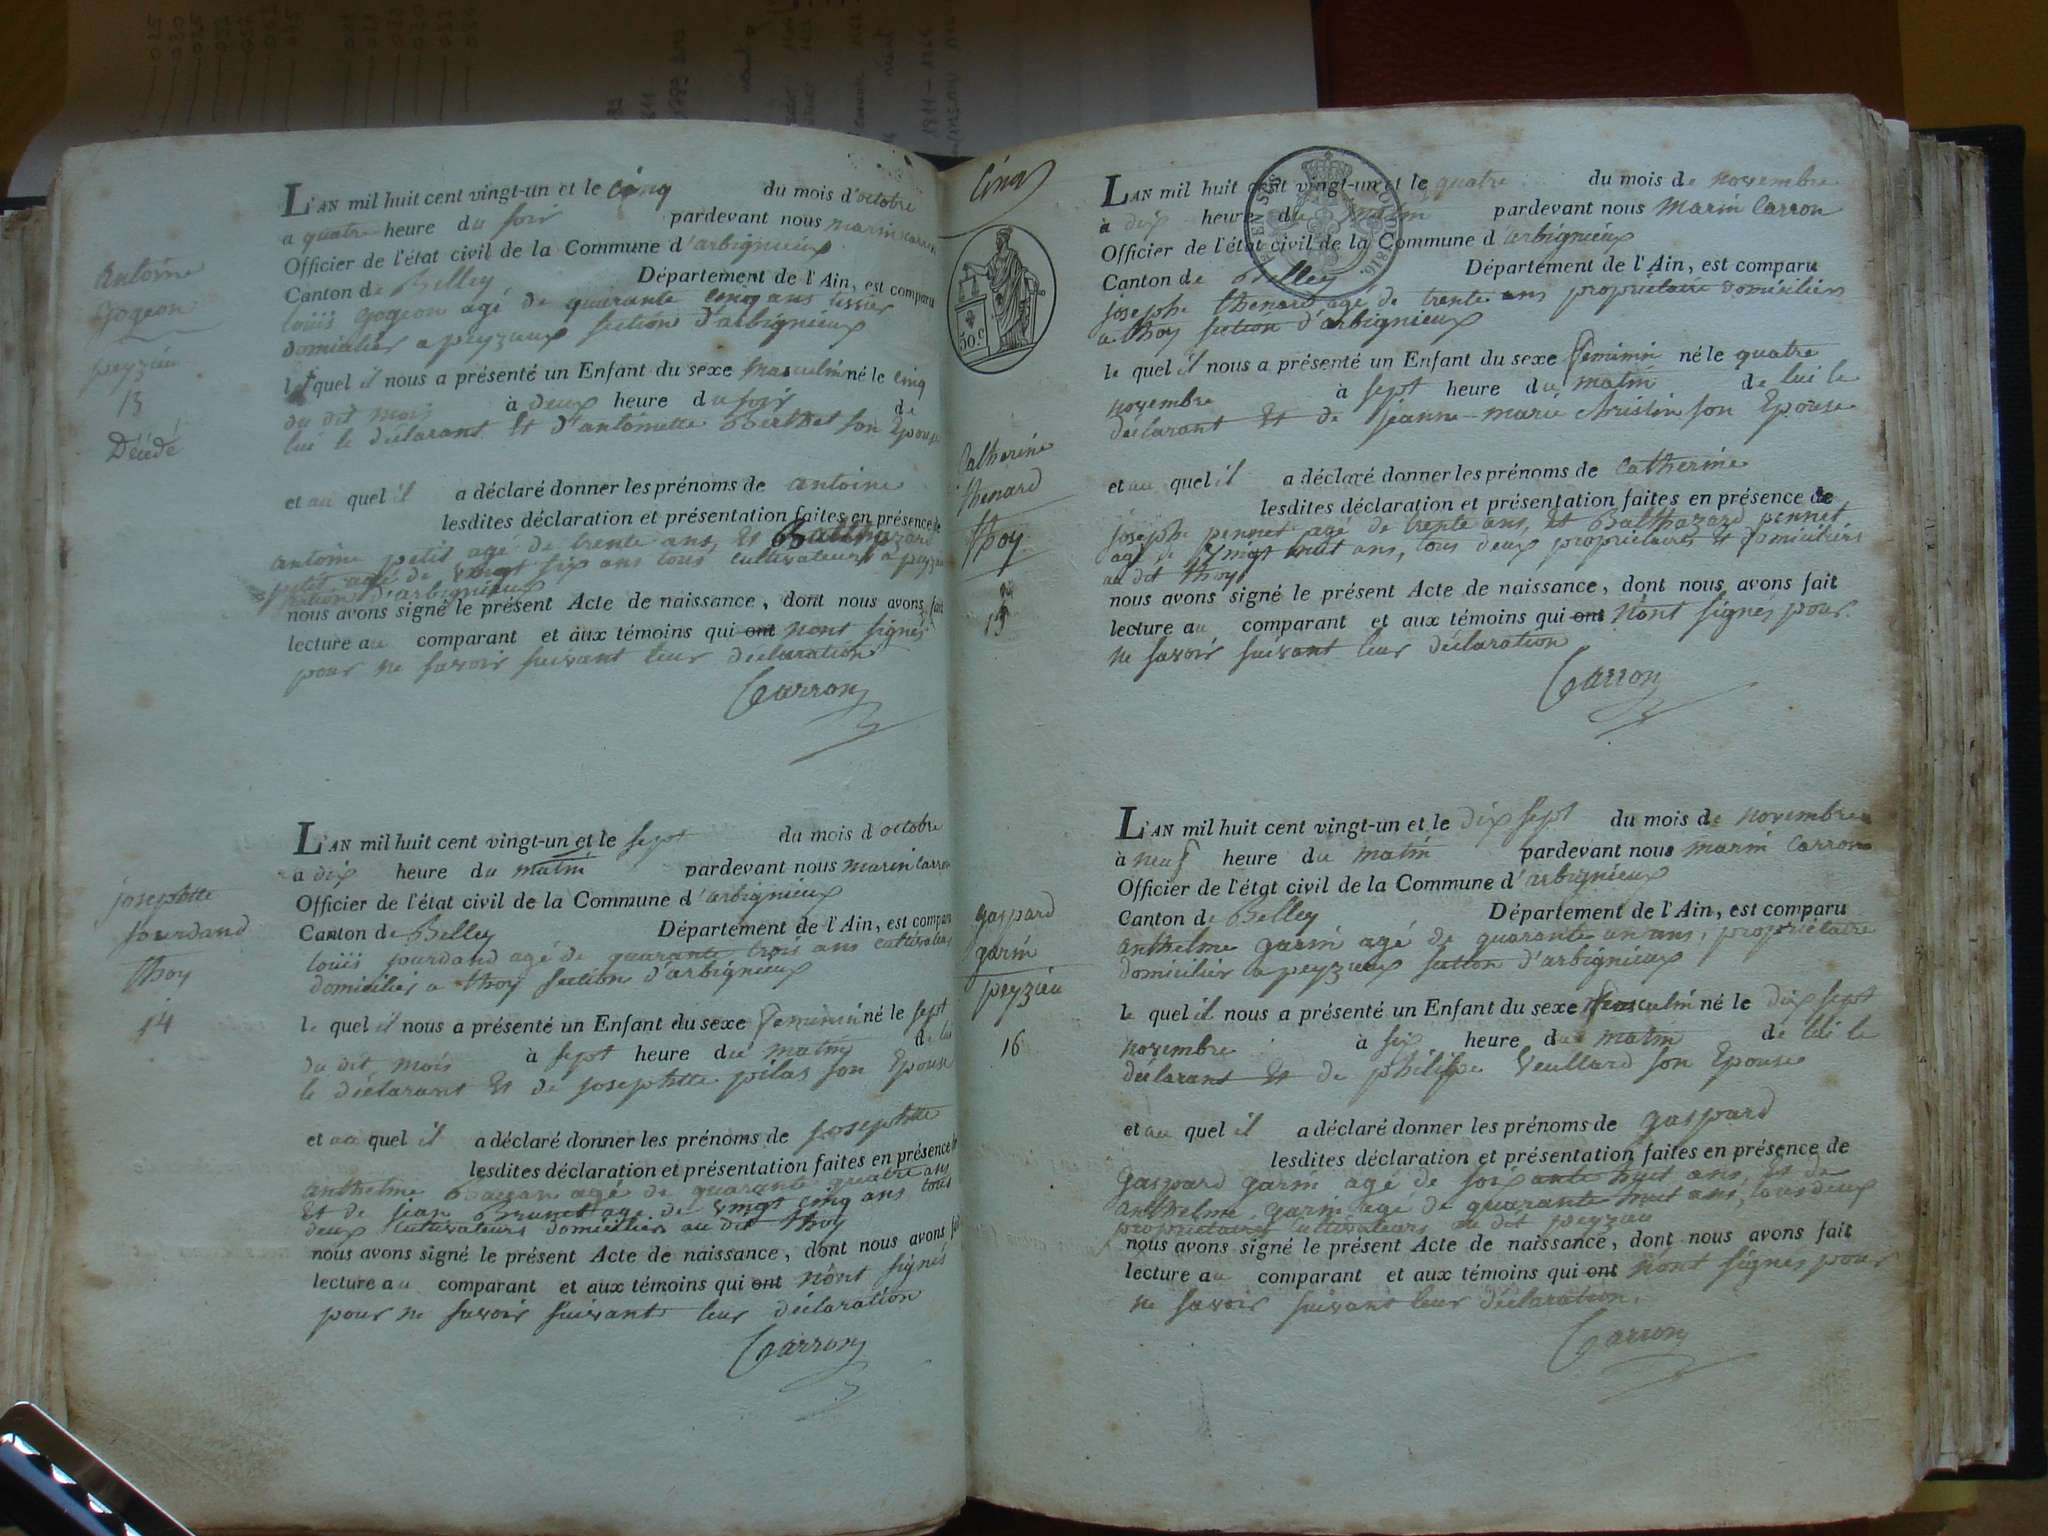 Antoine
Gogeon
peyzieu
13
Décédé
L'AN mil huit cent vingt-un et le cinq du mois d'octobre
a quatre heure du soir pardevant nous marin carron
Officier de l'état civil de la Commune d'arbignieux
Canton de Belley Département de l'Ain, est comparu
louis gogeon agé de quarante cinq ans tissier
domicilier a peyzieux section d'arbignieux
le quel il nous a présenté un Enfant du sexe masculin né le cinq
du dit mois à deux heure du soir de
lui le déclarant Et d'antoinette Berthet son Epouse
et au quel il a déclaré donner les prénoms de antoine
lesdites déclaration et présentation faites en présence de
antoine petit agé de trente ans, Et Balthazard
petit agé de vingt six ans tous cultivateurs a peyzieu
section d'arbignieux
nous avons signé le présent Acte de naissance, dont nous avons fait
lecture au comparant et aux témoins qui ont nont signés
pour ne savoir suivant leur déclaration
Carron
josephtte
jourdand
thoy
14
L'AN mil huit cent vingt-un et le sept du mois d'octobre
a dix heure du matin pardevant nous marin Carron
Officier de l'état civil de la Commune d'arbignieux
Canton de Belley Département de l'Ain, est comparu
louis jourdand agé de quarante trois ans cultivateur
domicilier a thoy section d'arbignieux
le quel il nous a présenté un Enfant du sexe feminin né le sept
du dit mois à sept heure du matin de lui
le déclarant Et de josephtte pilas son Epouse
et au quel il a déclaré donner les prénoms de josephtte
lesdites déclaration et présentation faites en présence de
anthelme agé de quarante quatre ans
Et de jean Brunet agé de vingt cinq ans tous
deux cultivateurs domicilier au dit thoy
nous avons signé le présent Acte de naissance, dont nous avons fait
lecture au comparant et aux témoins qui ont nont signés
pour ne savoir suivant leur déclaration
Carron
cinq
50 c
Catherine
thenard
thoy
15
L'AN mil huit cent vingt-un et le quatre du mois de novembre
à dix heure du matin pardevant nous Marin Carron
Officier de l'état civil de la Commune d'arbignieux
Canton de Belley Département de l'Ain, est comparu
joseph thenard agé de trente ans propriétaire domicilier
a thoy section d'arbignieux
le quel il nous a présenté un Enfant du sexe feminin né le quatre
novembre à sept heure du matin de lui le
déclarant Et de jeanne-marie christin son Epouse
et au quel il a déclaré donner les prénoms de catherine
lesdites déclaration et présentation faites en présence de
joseph pennet agé de trente ans, Et Balthazard pennet
agé de vingt huit ans, tous deux propriétaires et domiciliers
au dit thoy
nous avons signé le présent Acte de naissance, dont nous avons fait
lecture au comparant et aux témoins qui ont nont signés pour
ne savoir suivant leur déclaration
Carron
gaspard
garin
peyzieu
16
L'AN mil huit cent vingt-un et le dix sept du mois de novembre
à neuf heure du matin pardevant nous marin Carron
Officier de l'état civil de la Commune d'arbignieux
Canton de Belley Département de l'Ain, est comparu
anthelme garin agé de quarante un ans, propriétaire
domicilier a peyzieux section d'arbignieux
le quel il nous a présenté un Enfant du sexe masculin né le dix sept
novembre à six heure du matin de lui le
déclarant Et de philippe veullard son Epouse
et au quel il a déclaré donner les prénoms de gaspard
lesdites déclaration et présentation faites en présence de
gaspard garin agé de soixante huit ans, Et de
anthelme garin agé de quarante huit ans, tous deux
propriétaires cultivateurs au dit peyzieu
nous avons signé le présent Acte de naissance, dont nous avons fait
lecture au comparant et aux témoins qui ont nont signés pour
ne savoir suivant leur déclaration.
Carron